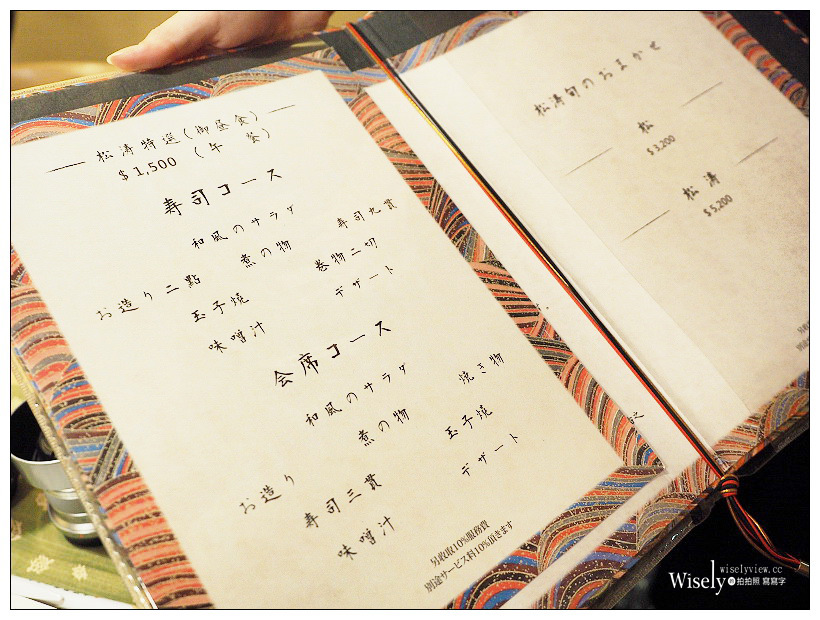 松濤特選(御昼食)
$1,500 (午 餐)
寿司コース
和風のサラダ
煮の物
寿司九貫
お造り二點
玉子焼
巻物二切
味噌汁
デザート
会席コース
和風のサラダ
煮の物
焼き物
お造り
寿司三貫
玉子焼
味噌汁
デザート
另收取10%服務費
別途サービス料10%頂きます
松濤旬のおまかせ
松
$3,200
松濤
$5,200
wiselyview.cc
Wisely の 拍拍照 寫寫字